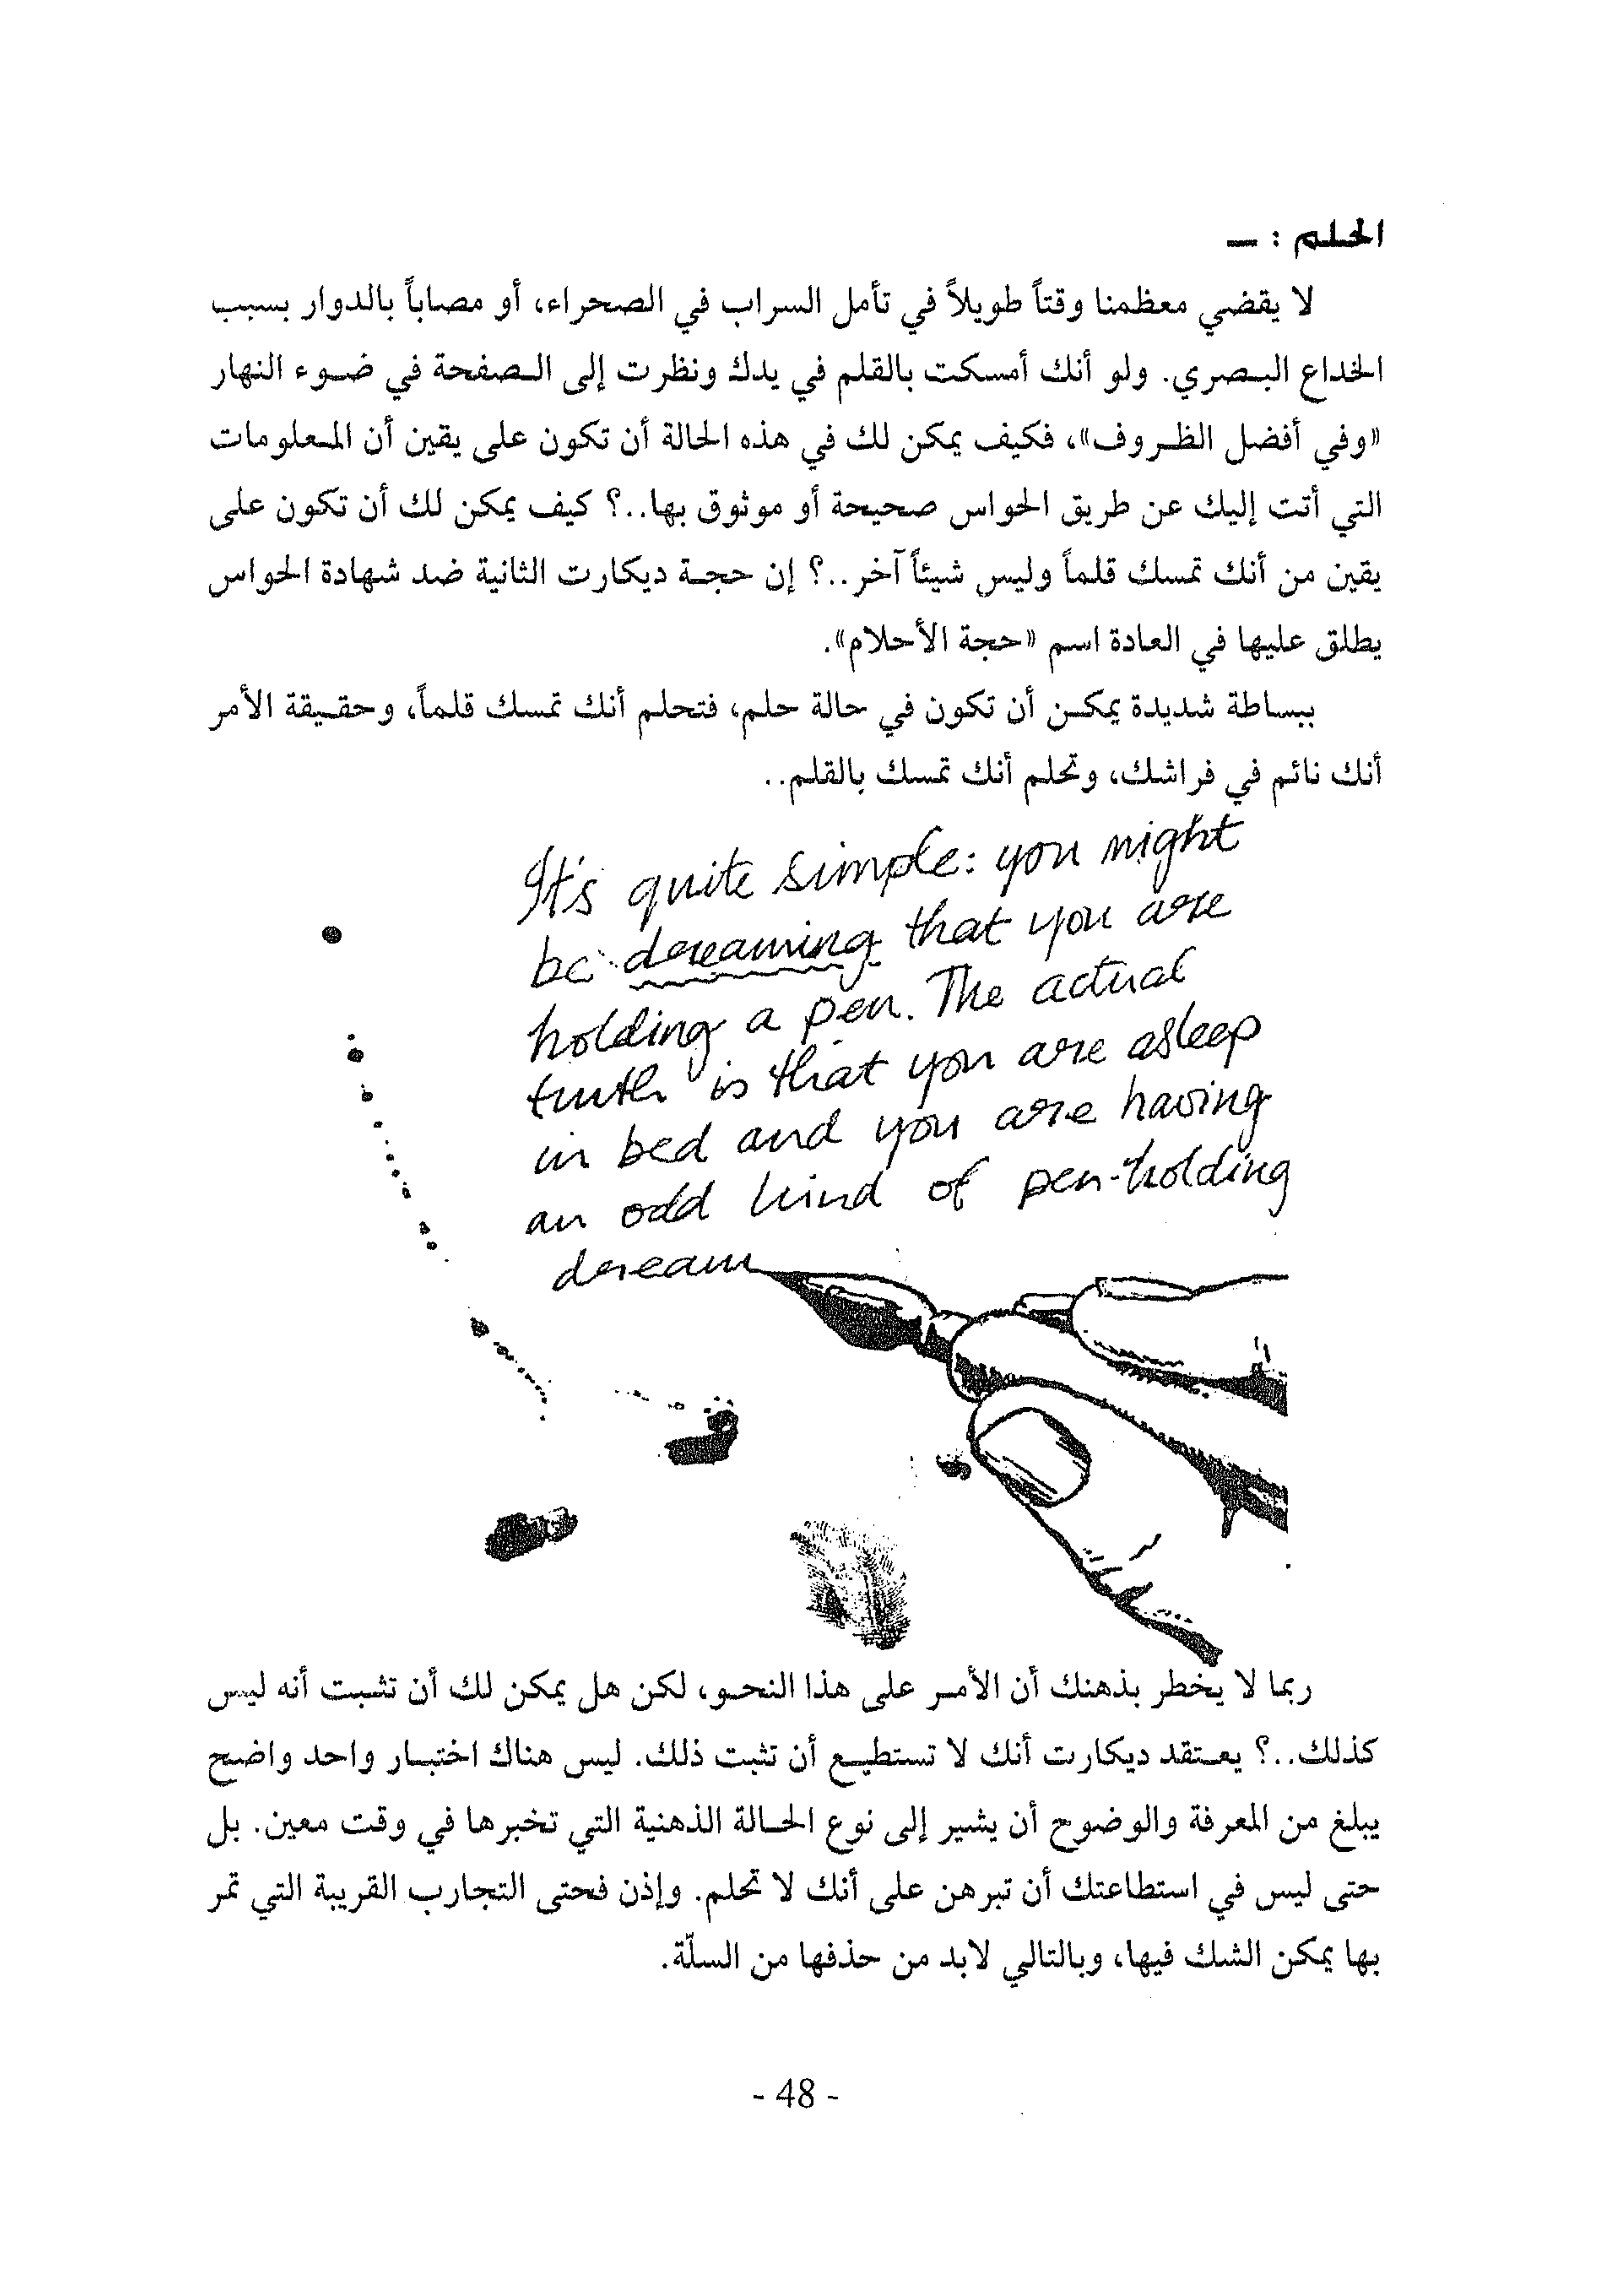 الحلم : ـ
لا يقضي معظمنا وقتاً طويلاً في تأمل السراب في الصحراء، أو مصاباً بالدوار بسبب
الخداع البصري. ولو أنك أمسكت بالقلم في يدك ونظرت إلى الصفحة في ضوء النهار
«وفي أفضل الظروف»، فكيف يمكن لك في هذه الحالة أن تكون على يقين أن المعلومات
التي أتت إليك عن طريق الحواس صحيحة أو موثوق بها..؟ كيف يمكن لك أن تكون على
يقين من أنك تمسك قلماً وليس شيئاً آخر..؟ إن حجة ديكارت الثانية ضد شهادة الحواس
يطلق عليها في العادة اسم «حجة الأحلام».
ببساطة شديدة يمكن أن تكون في حالة حلم، فتحلم أنك تمسك قلماً، وحقيقة الأمر
أنك نائم في فراشك، وتحلم أنك تمسك بالقلم..
It's quite simple: you might
be dreaming that you are
holding a pen. The actual
truth is that you are asleep
in bed and you are having
an odd kind of pen-holding
dream
ربما لا يخطر بذهنك أن الأمر على هذا النحو، لكن هل يمكن لك أن تثبت أنه ليس
كذلك..؟ يعتقد ديكارت أنك لا تستطيع أن تثبت ذلك. ليس هناك اختبار واحد واضح
يبلغ من المعرفة والوضوح أن يشير إلى نوع الحالة الذهنية التي تخبرها في وقت معين. بل
حتى ليس في استطاعتك أن تبرهن على أنك لا تحلم. وإذن فحتى التجارب القريبة التي تمر
بها يمكن الشك فيها، وبالتالي لابد من حذفها من السلّة.
- 48 -